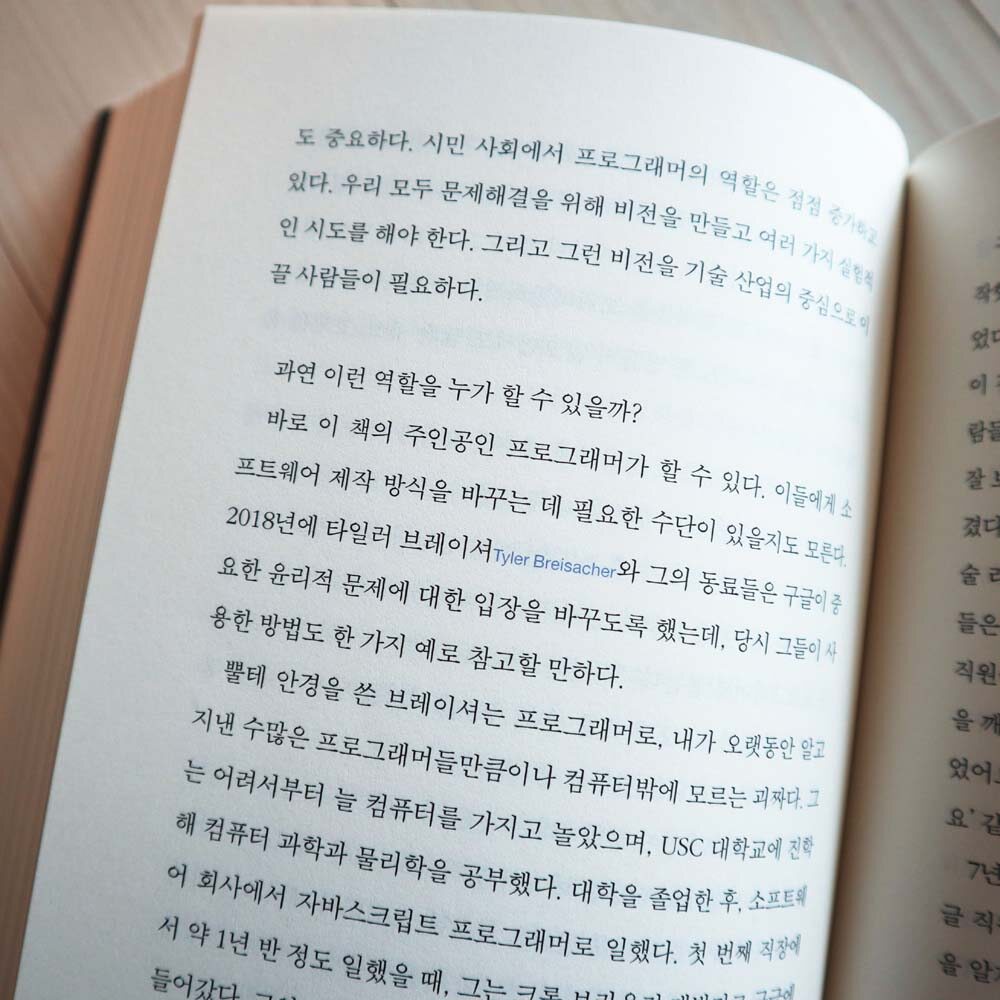 도 중요하다. 시민 사회에서 프로그래머의 역할은 점점 증가하고
있다. 우리 모두 문제해결을 위해 비전을 만들고 여러 가지 실험적
인 시도를 해야 한다. 그리고 그런 비전을 기술 산업의 중심으로 이
끌 사람들이 필요하다.
과연 이런 역할을 누가 할 수 있을까?
바로 이 책의 주인공인 프로그래머가 할 수 있다. 이들에게 소
프트웨어 제작 방식을 바꾸는 데 필요한 수단이 있을지도 모른다.
2018년에 타일러 브레이셔Tyler Breisacher와 그의 동료들은 구글이 중
요한 윤리적 문제에 대한 입장을 바꾸도록 했는데, 당시 그들이 사
용한 방법도 한 가지 예로 참고할 만하다.
뿔테 안경을 쓴 브레이셔는 프로그래머로, 내가 오랫동안 알고
지낸 수많은 프로그래머들만큼이나 컴퓨터밖에 모르는 괴짜다. 그
는 어려서부터 늘 컴퓨터를 가지고 놀았으며, USC 대학교에 진학
해 컴퓨터 과학과 물리학을 공부했다. 대학을 졸업한 후, 소프트웨
어 회사에서 자바스크립트 프로그래머로 일했다. 첫 번째 직장에
서 약 1년 반 정도 일했을 때, 그는 크롬
들어갔다.
었다
이
람들
잘
겼다
술
들은
직원
을 깨
었어
요’ 같
7년
글 직
을 알